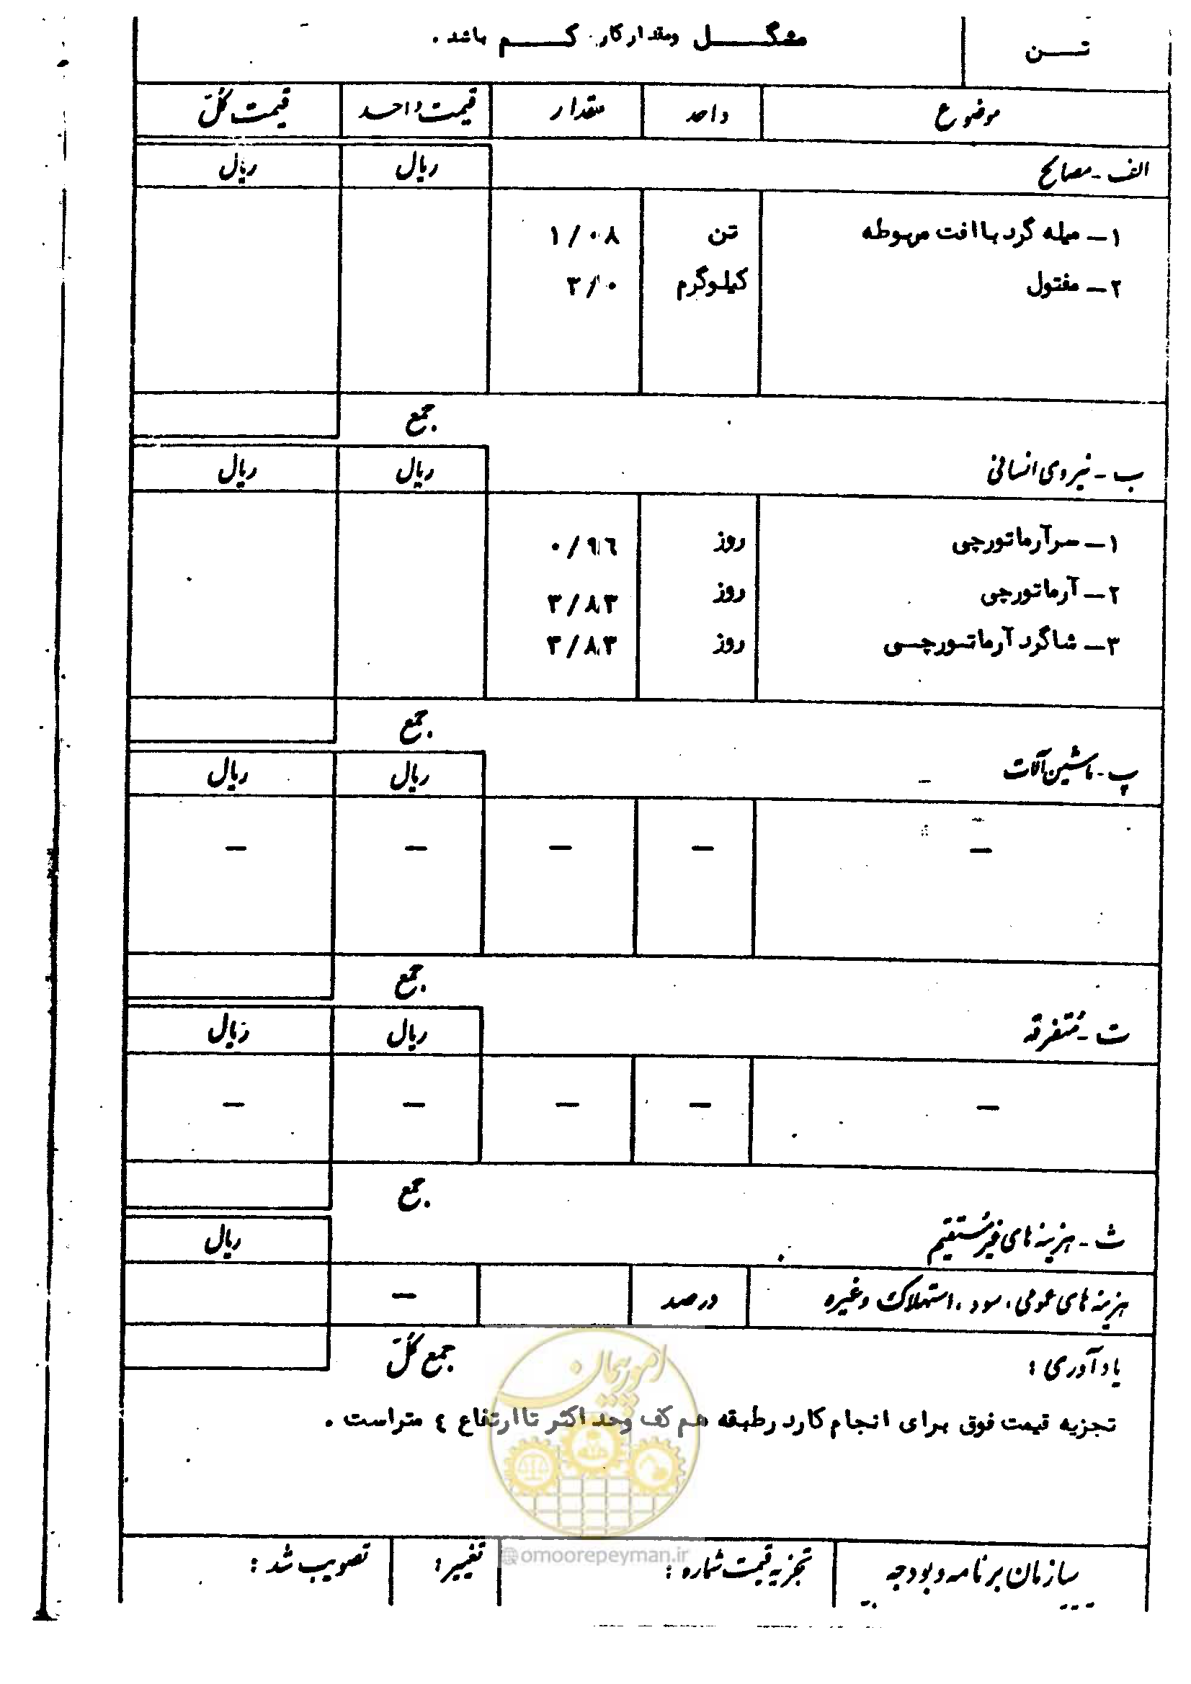 مشگـــل ومقدارکار کـــم باشد .
تــن
موضوع واحد مقدار قیمت واحد قیمت کلّ
الف - مصالح ریال ریال
۱ــ میله گرد باافت مربوطه تن ۱/۰۸
۲ــ مفتول کیلوگرم ۳/۰
جمع
ب - نیروی انسانی ریال ریال
۱ــ سرآرماتورچی روز ۰/۹٦
۲ــ آرماتورچی روز ۳/۸۳
۳ــ شاگرد آرماتورچی روز ۳/۸۳
جمع
پ - ماشین‌آلات ریال ریال
— — — — —
جمع
ت - مُتفرقه ریال ریال
— — — — —
جمع
ث - هزینه های غیرمُستقیم ریال
هزینه های عمومی ، سود ، استهلاک وغیره درصد —
یادآوری : جمع کُلّ
تجزیه قیمت فوق برای انجام کارد رطبقه هم کف وحداکثر تاارتفاع ٤ متراست .
امور پیمان
@omoorepeyman.ir
سازمان برنامه وبودجه تجزیه قیمت شماره : تغییر : تصویب شد :